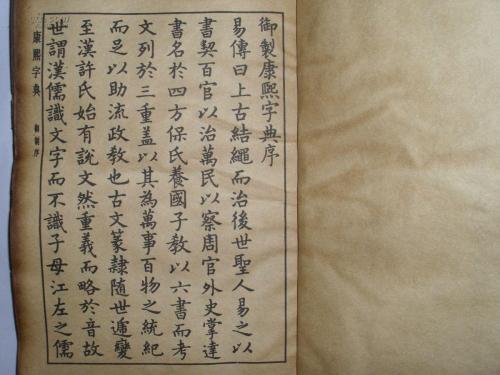 御製康熙字典序
易傳曰上古結繩而治後世聖人易之以
書契百官以治萬民以察周官外史掌達
書名於四方保氏養國子教以六書而考
文列於三重盖以其為萬事百物之統紀
而足以助流政教也古文篆隸隨世遞變
至漢許氏始有說文然重義而略於音故
世謂漢儒識文字而不識子母江左之儒
康熙字典 御製序